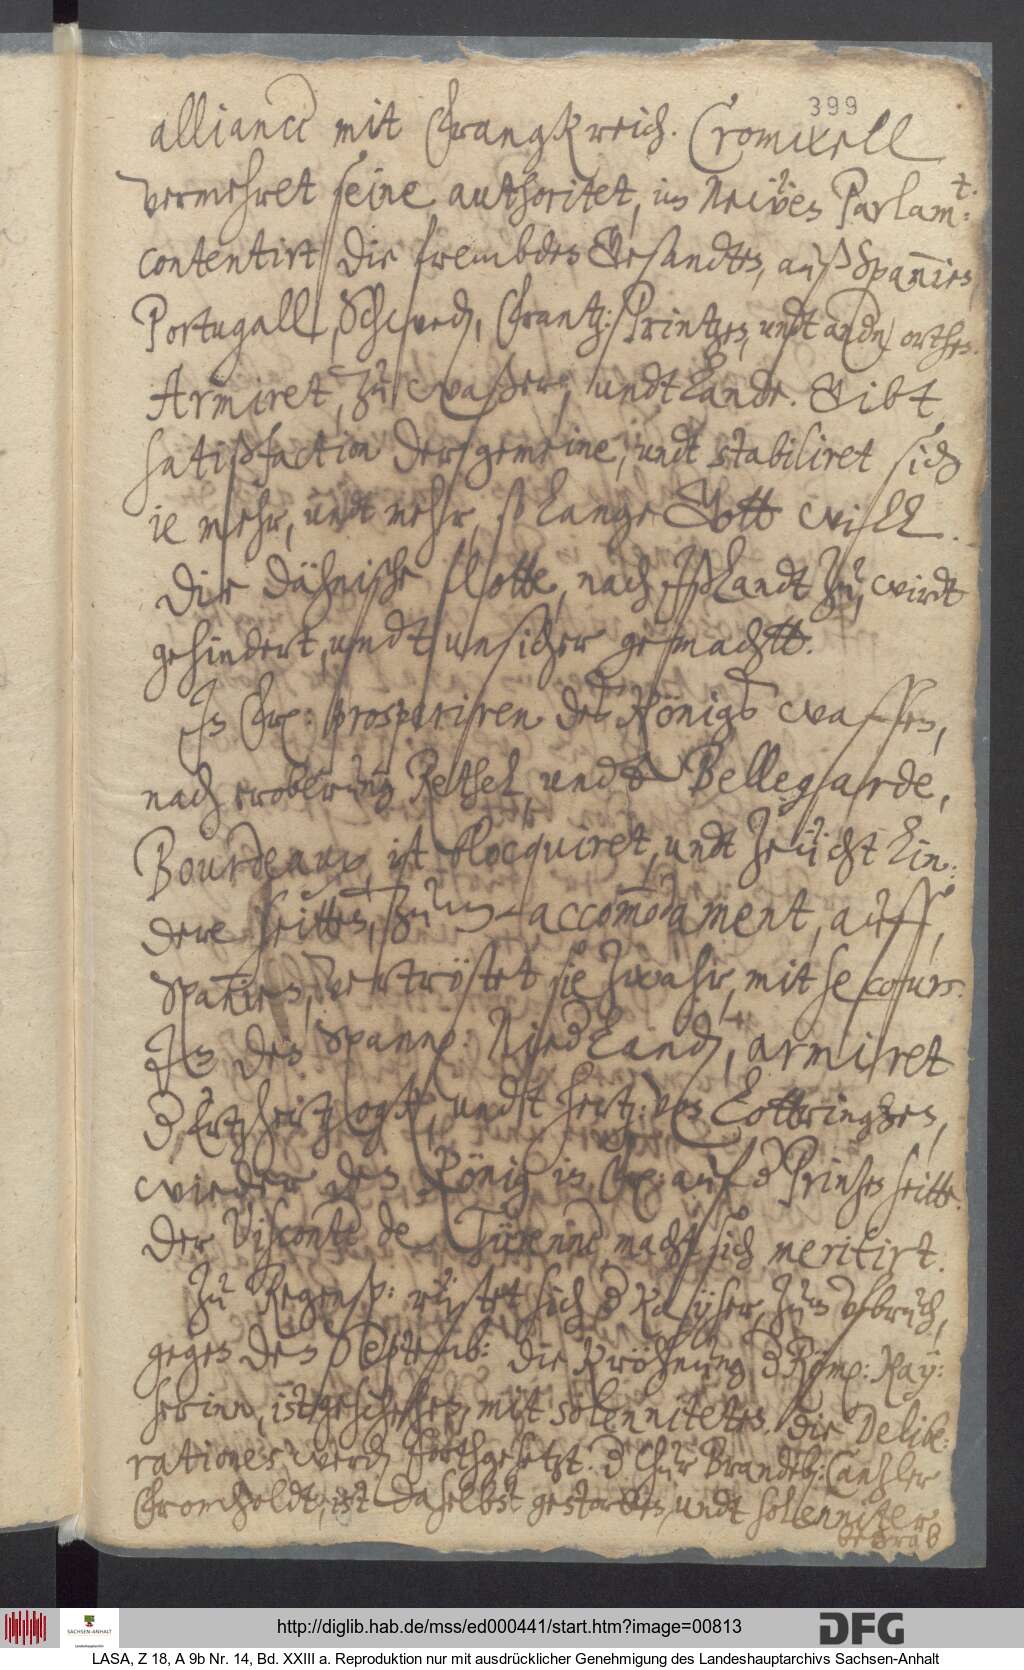 399
alliance mit Franckreich. Cromwell
vermehret seine authoritet, im Neẅen Parlam:t
contentirt die frembden Gesandten, auß Spannien,
Portugall, Schwed, Frantz: Printzen, undt andern orthen.
Armiret, zu waßer, undt Lande. Gibt
satißfaction der gemeine, undt stabiliret sich
ie mehr, undt mehr, so lange Gott will.
Die Dähnische flotte, nach Ißlandt zu, wirdt
gehindert, undt unsicher gemachtt.
In Frankreich: prosperiren des Königs waffen,
nach eroberung Rethel, undt Bellegarde,
Bourdeaux, ist blocquiret, undt zeücht lin:
dere seitten, zum accommodament, auff,
Spanien, vertröstet sie zwahr, mit secours.
In den Spann: NiedLand, armiret
d Ertzhertzogk, undt Hertz: von Lottringhen,
wieder den König in Fr: auf d Prinsen seitte.
Der Visconte de Türenne macht sich meritirt.
Zu Regensp: rüstet sich d Kayser, zum ufbruch,
gegen den Septemb: die Kröhnung d Röm: Kay:
serinn, ist geschehen, mit solenniteten. die Delibe:
rationes werden forthgesetzt. d Chur Brandeb: Cantzler
Fromholdt, ist daselbst gestorben, undt solenniter
begrab
http://diglib.hab.de/mss/ed000441/start.htm?image=00813
DFG
SACHSEN-ANHALT
Landeshauptarchiv
LASA, Z 18, A 9b Nr. 14, Bd. XXIII a. Reproduktion nur mit ausdrücklicher Genehmigung des Landeshauptarchivs Sachsen-Anhalt